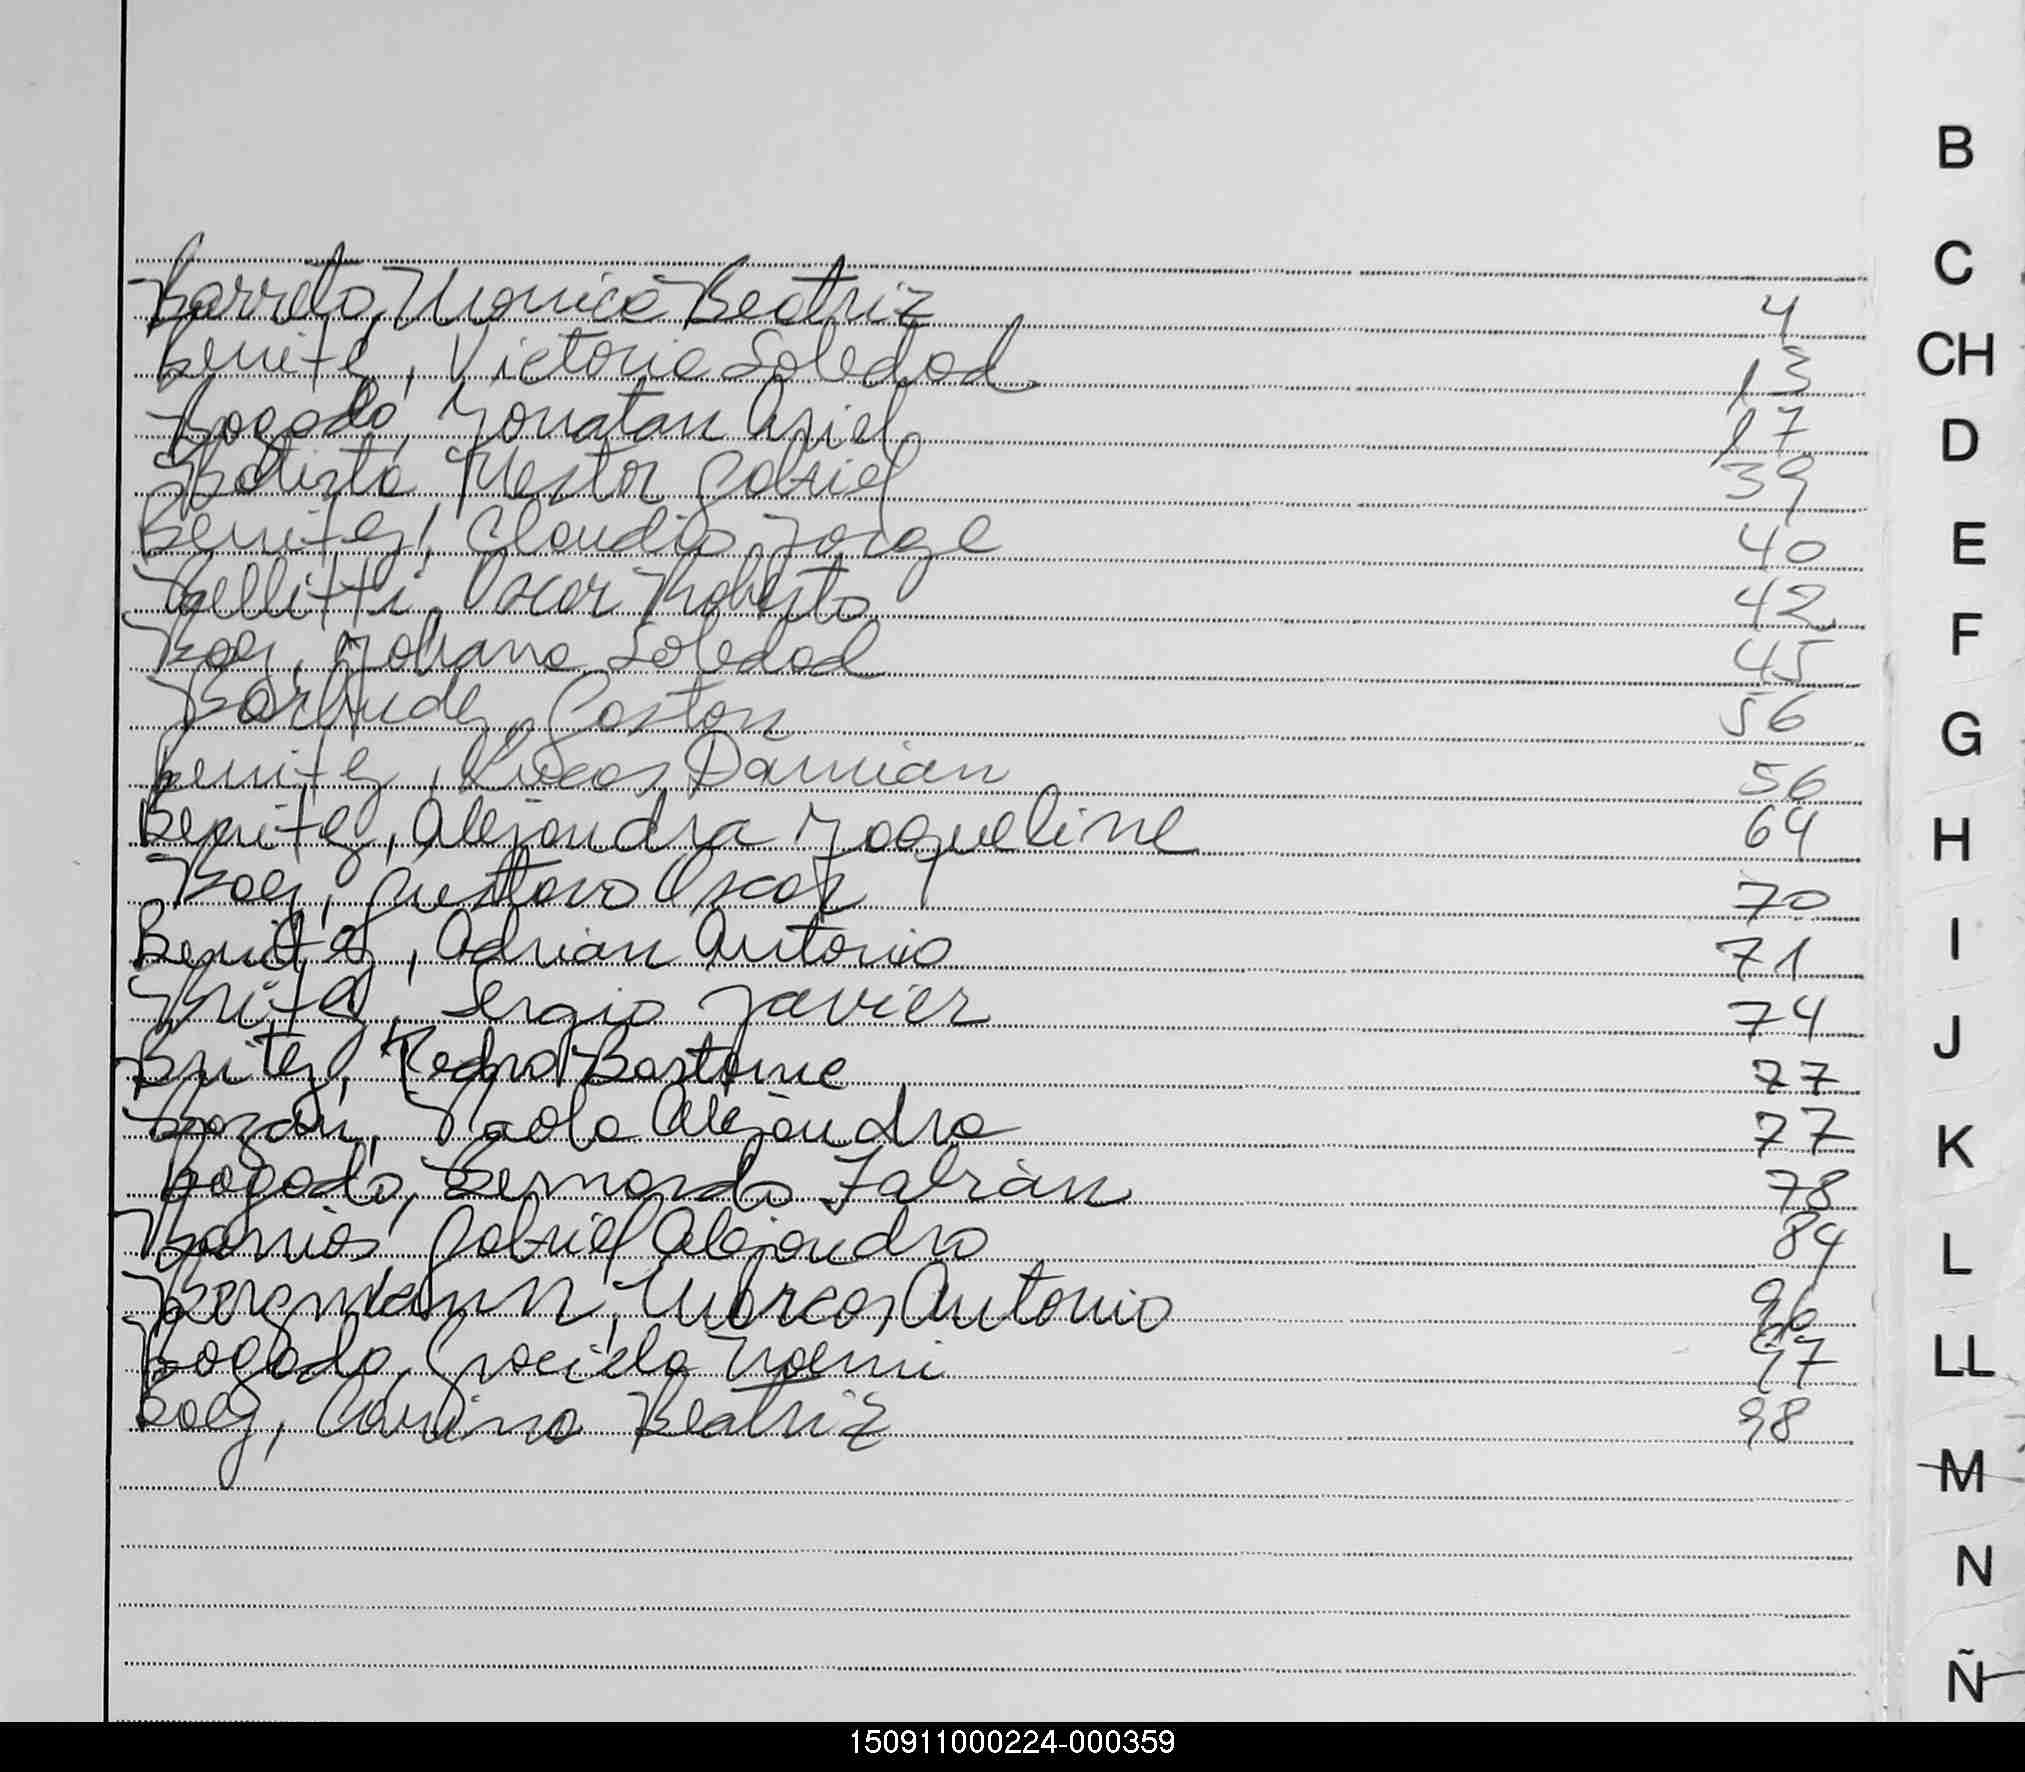 Barreto, Monica Beatriz 4
Benitez, Victoria Soledad 13
Bogado, Jonatan Ariel 17
Batista Nestor Gabriel 39
Benitez, Claudio Jorge 40
Bellitti, Oscar Roberto 42
Baez, Johana Soledad 45
Gaston 56
Benitez, Lucas Damián 56
Benitez, Alejandra Jaqueline 64
Baez, Gustavo Oscar 70
Benitez, Adrian Antonio 71
Britez, Sergio Javier 74
Britez, Pedro 77
Bazan, Paola Alejandra 77
Bogado, Bernardo Fabián 78
Barrios Gabriel Alejandro 84
Bergmann, Marcos Antonio 96
Bogado, Graciela Noemi 97
Baez, Carina Beatriz 98
B
C
CH
D
E
F
G
H
I
J
K
L
LL
M
N
Ñ
150911000224-000359